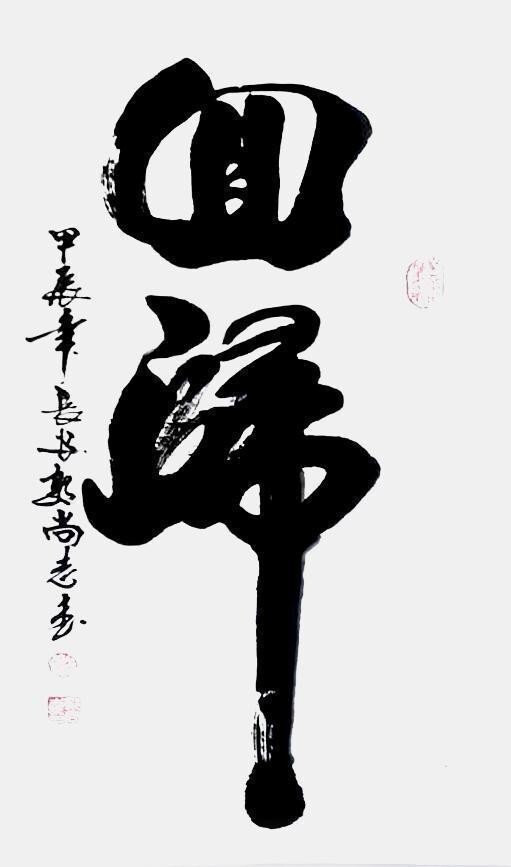 回歸
甲辰年長安郭尚志書